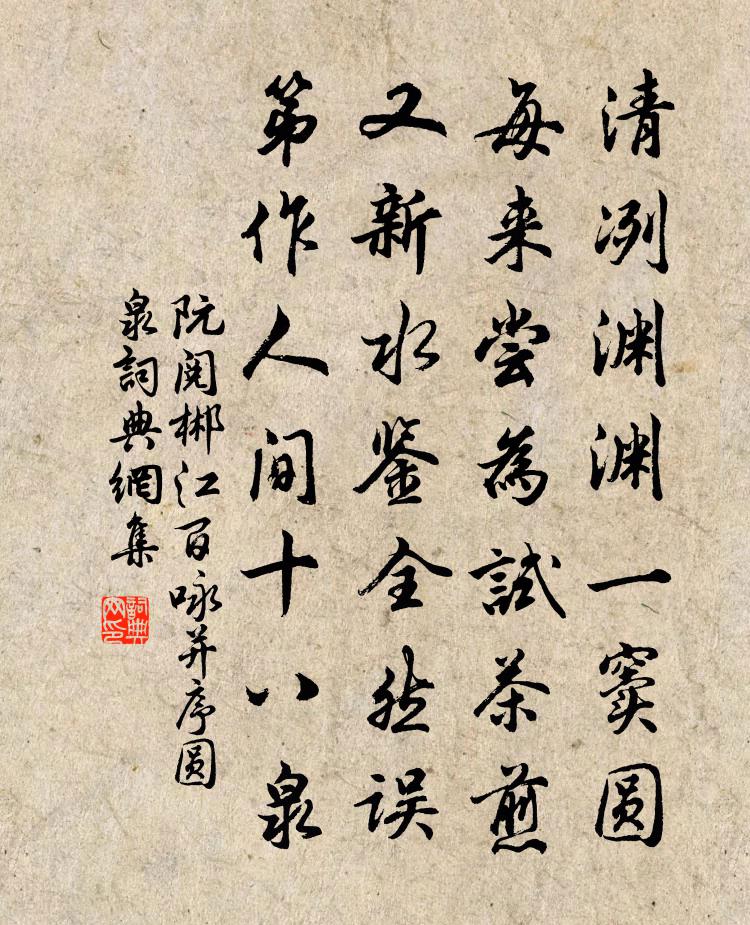 清冽渊渊一窦圆
每来尝為試茶煎
又新水鉴全然误
第作人间十八泉
阮阅郴江百咏并序圆
泉詞典網集
詞典网印